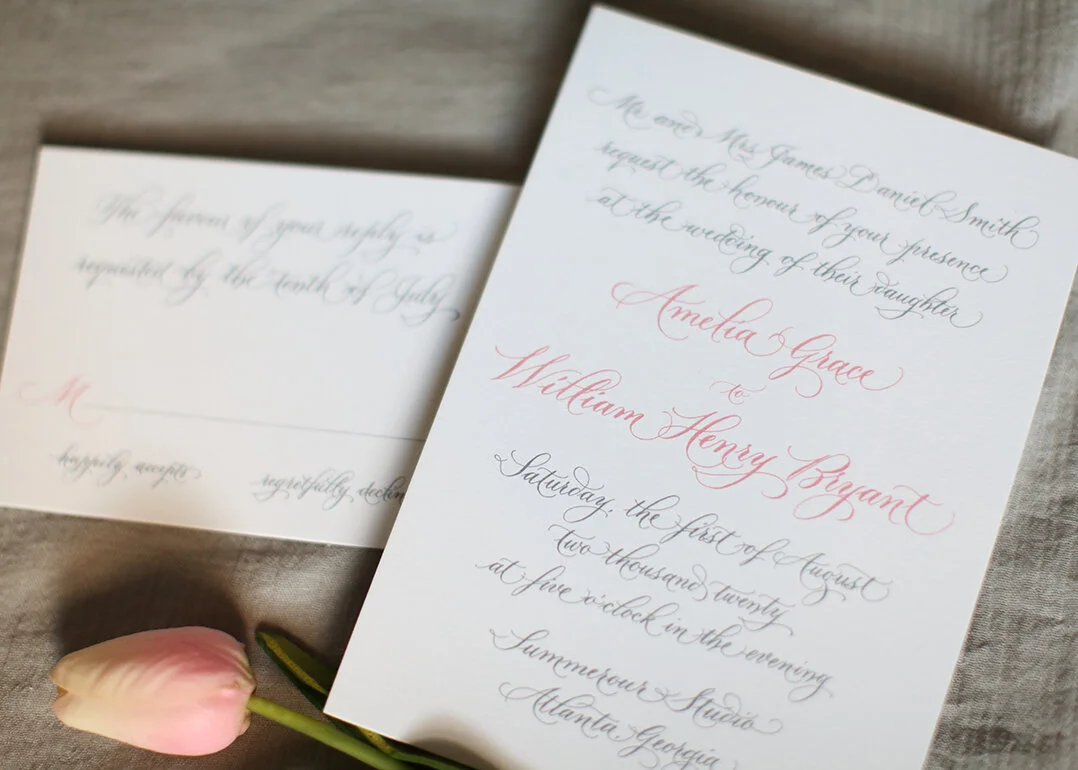 The favour of your reply is
requested by the tenth of July
M
happily accepts
regretfully declin
Mr and Mrs James Daniel Smith
request the honour of your presence
at the wedding of their daughter
Amelia Grace
to
William Henry Bryant
Saturday, the first of August
two thousand twenty
at five o'clock in the evening
Summerour Studio
Atlanta, Georgia